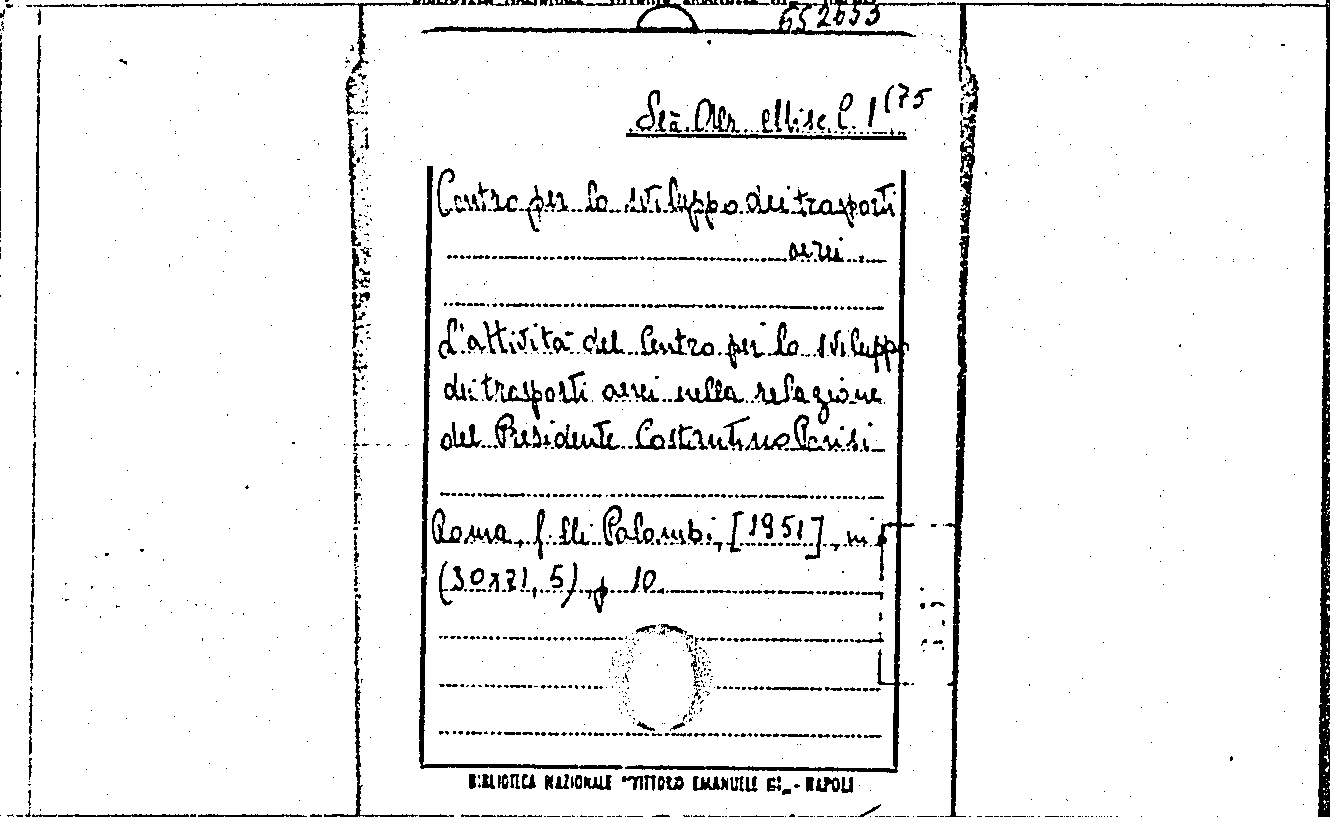 652633
Misc. C. 1(75
Centro per lo sviluppo dei trasporti
aerei.
L'attività del Centro per lo sviluppo
dei trasporti aerei nella relazione
del Presidente Costantino Parisi
Roma, f.lli Palombi, [1951], in
(30x21,5), p 10.
BIBLIOTECA NAZIONALE "VITTORIO EMANUELE III" - NAPOLI